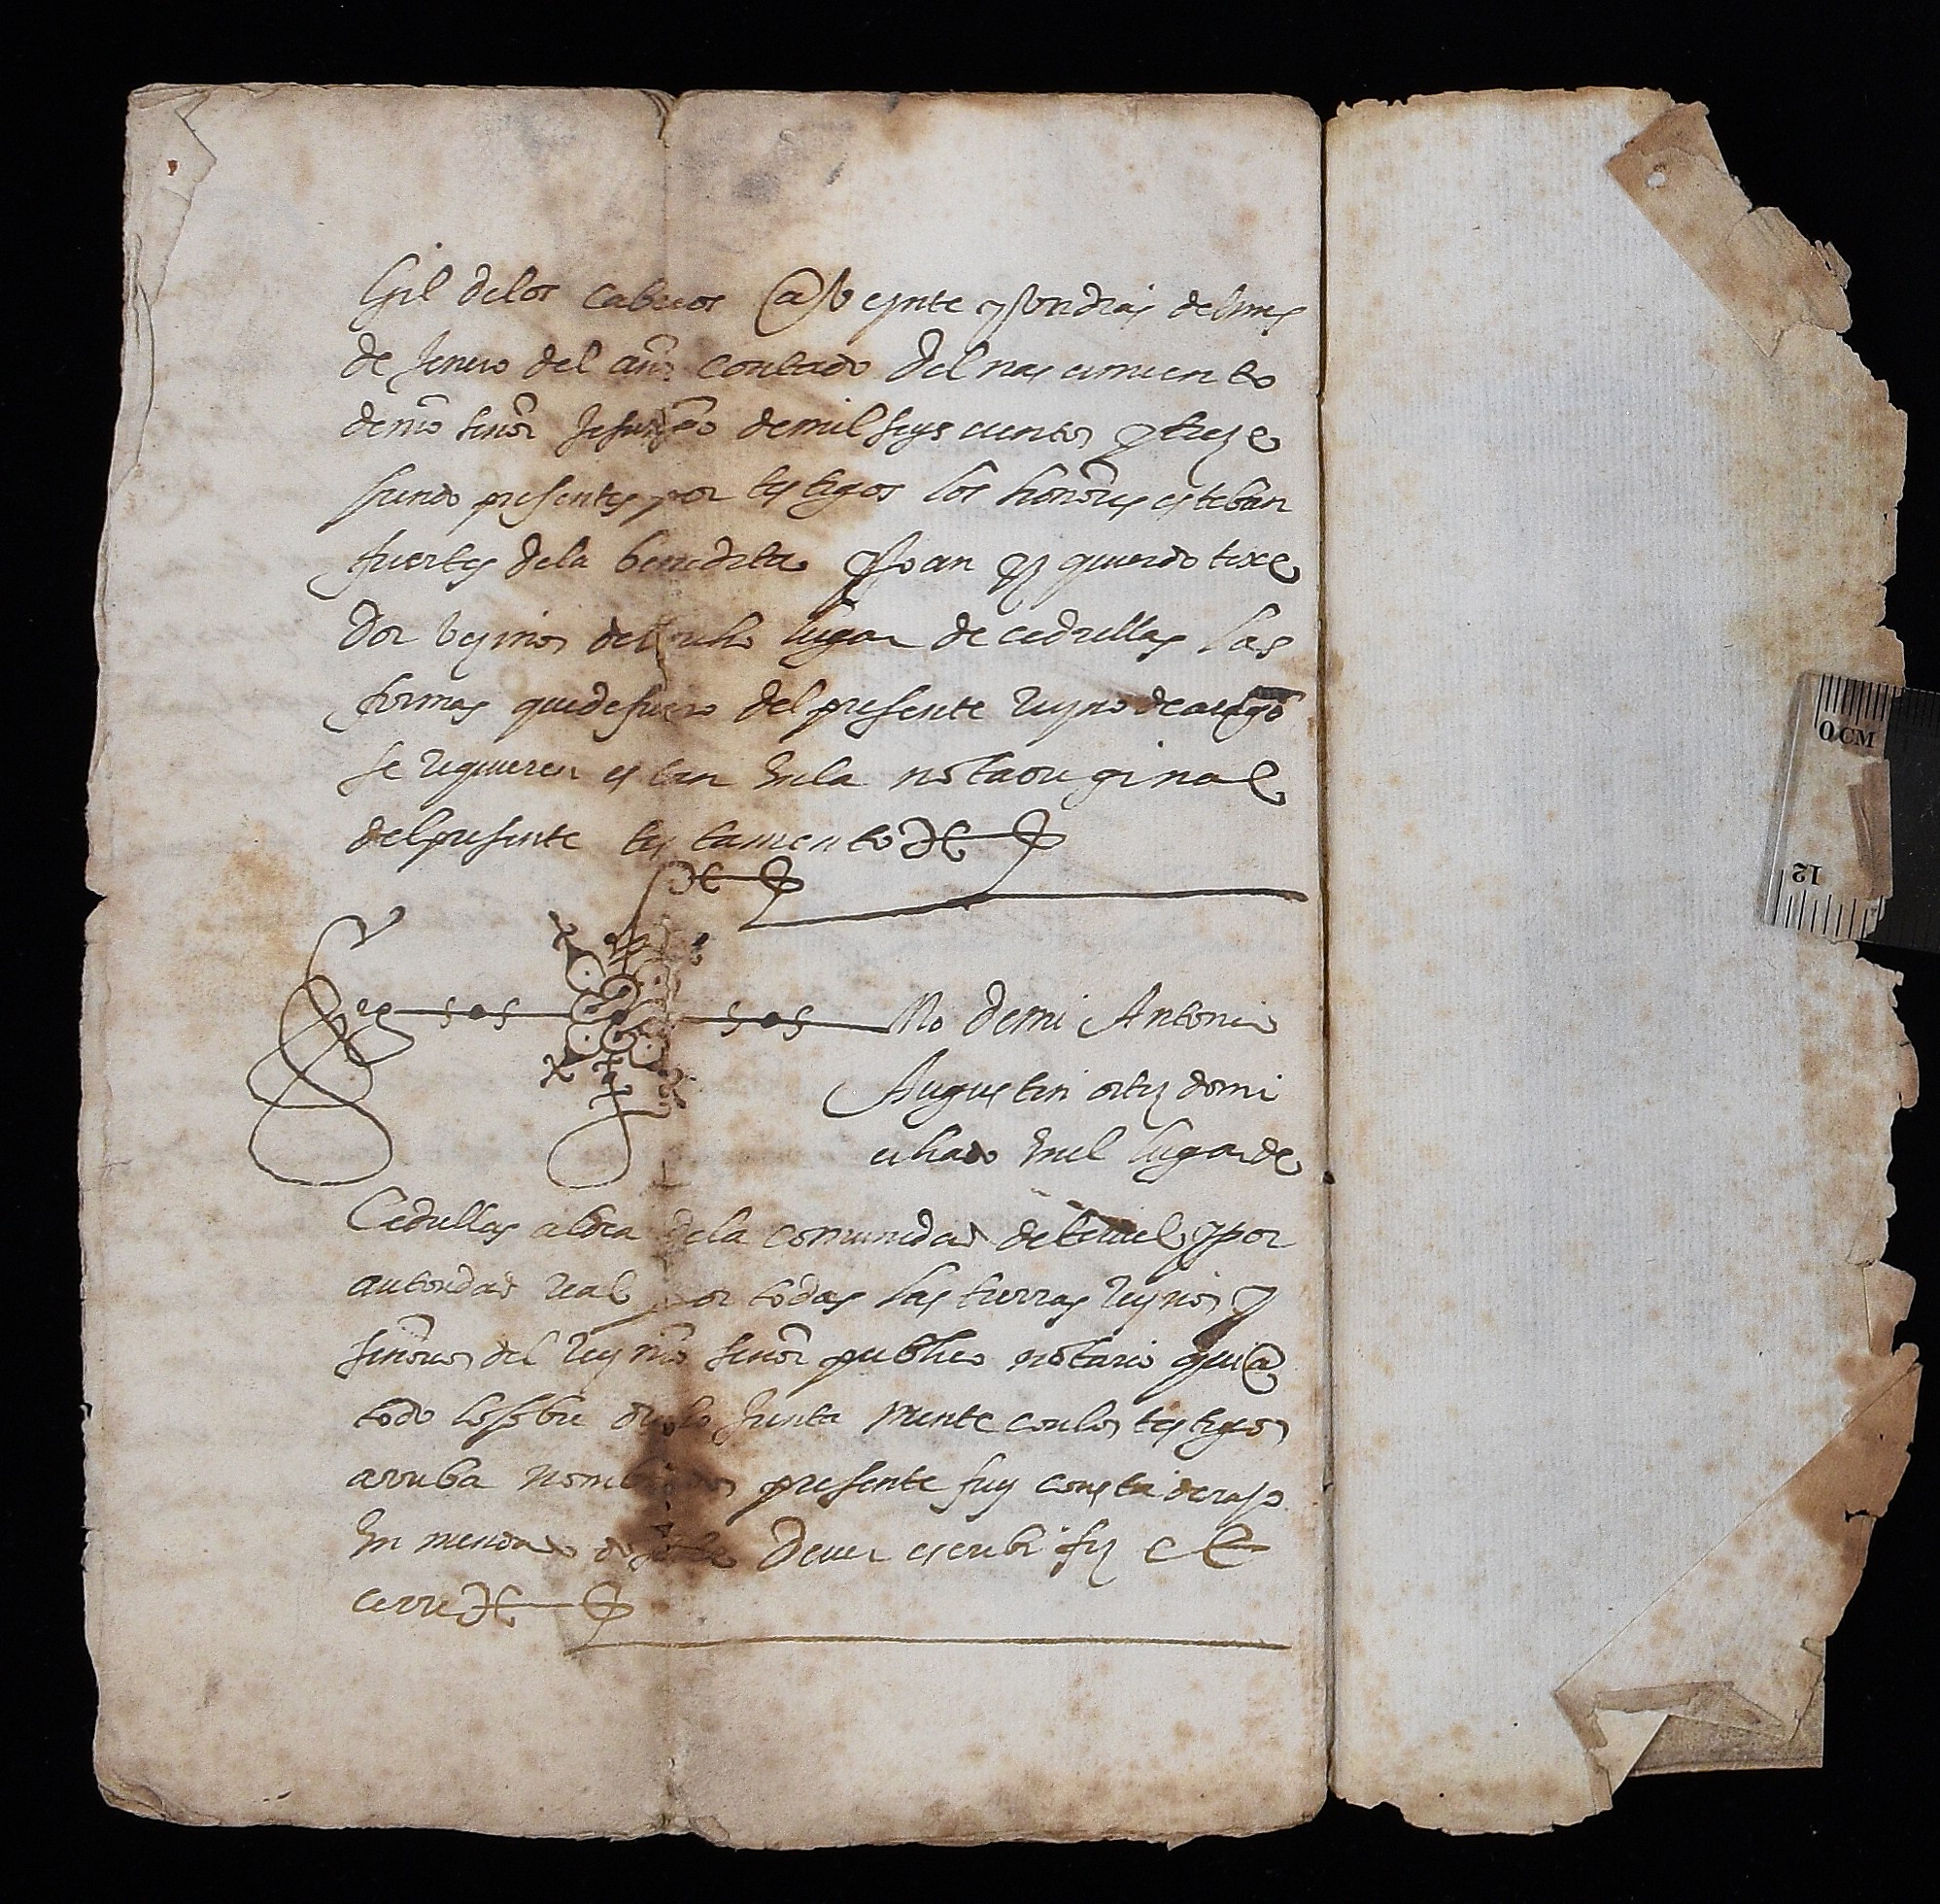 Gil delos cabreros a veynte y un dias del mes
de Jenero del año contado del nascimiento
de nro señor Jesuxpo de mil seys cientos y treze
siendo presentes por testigos los honores esteban
fuertes dela benedita y Joan yzquierdo texe
dor vezinos del dicho lugar de cedrillas las
formas que de fuero del presente reyno de aragō
se requieren estan en la nota original
del presente testamento
Sig no de mi Antonio
Augustin ortiz domi
ciliado en el lugar de
Cedrillas aldea dela comunidad de teruel y por
autoridad real por todas las tierras reynos y
señorios del rey nro señor publico notario qui a
todo lo sobre dicho junta mente con los testigos
arriba nombrados presente fuy consta de raso
en mendado do se lee dever escrebi fiz et
cerre
0 CM
12